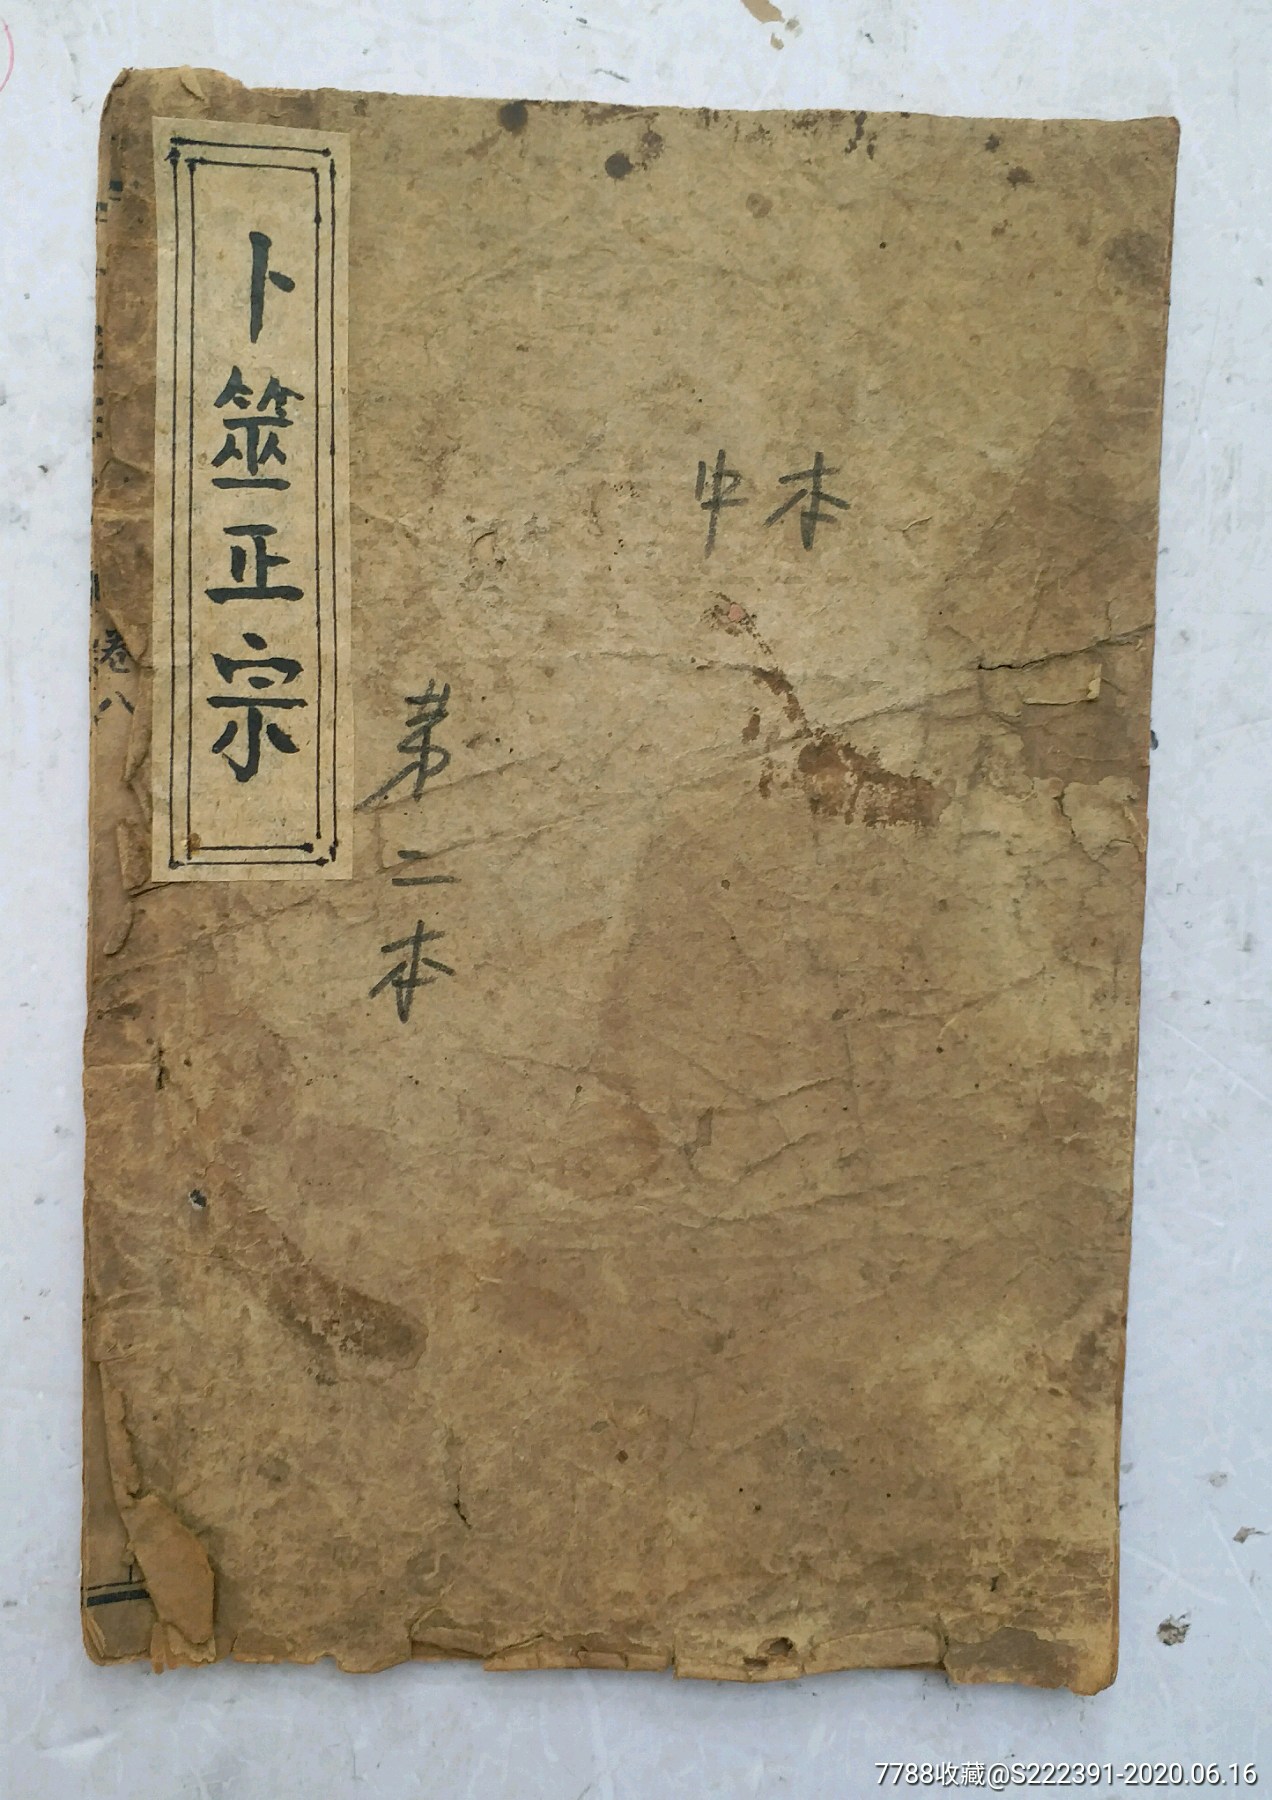 卜筮正宗
中本
第二本
卷八
7788收藏@S222391-2020.06.16